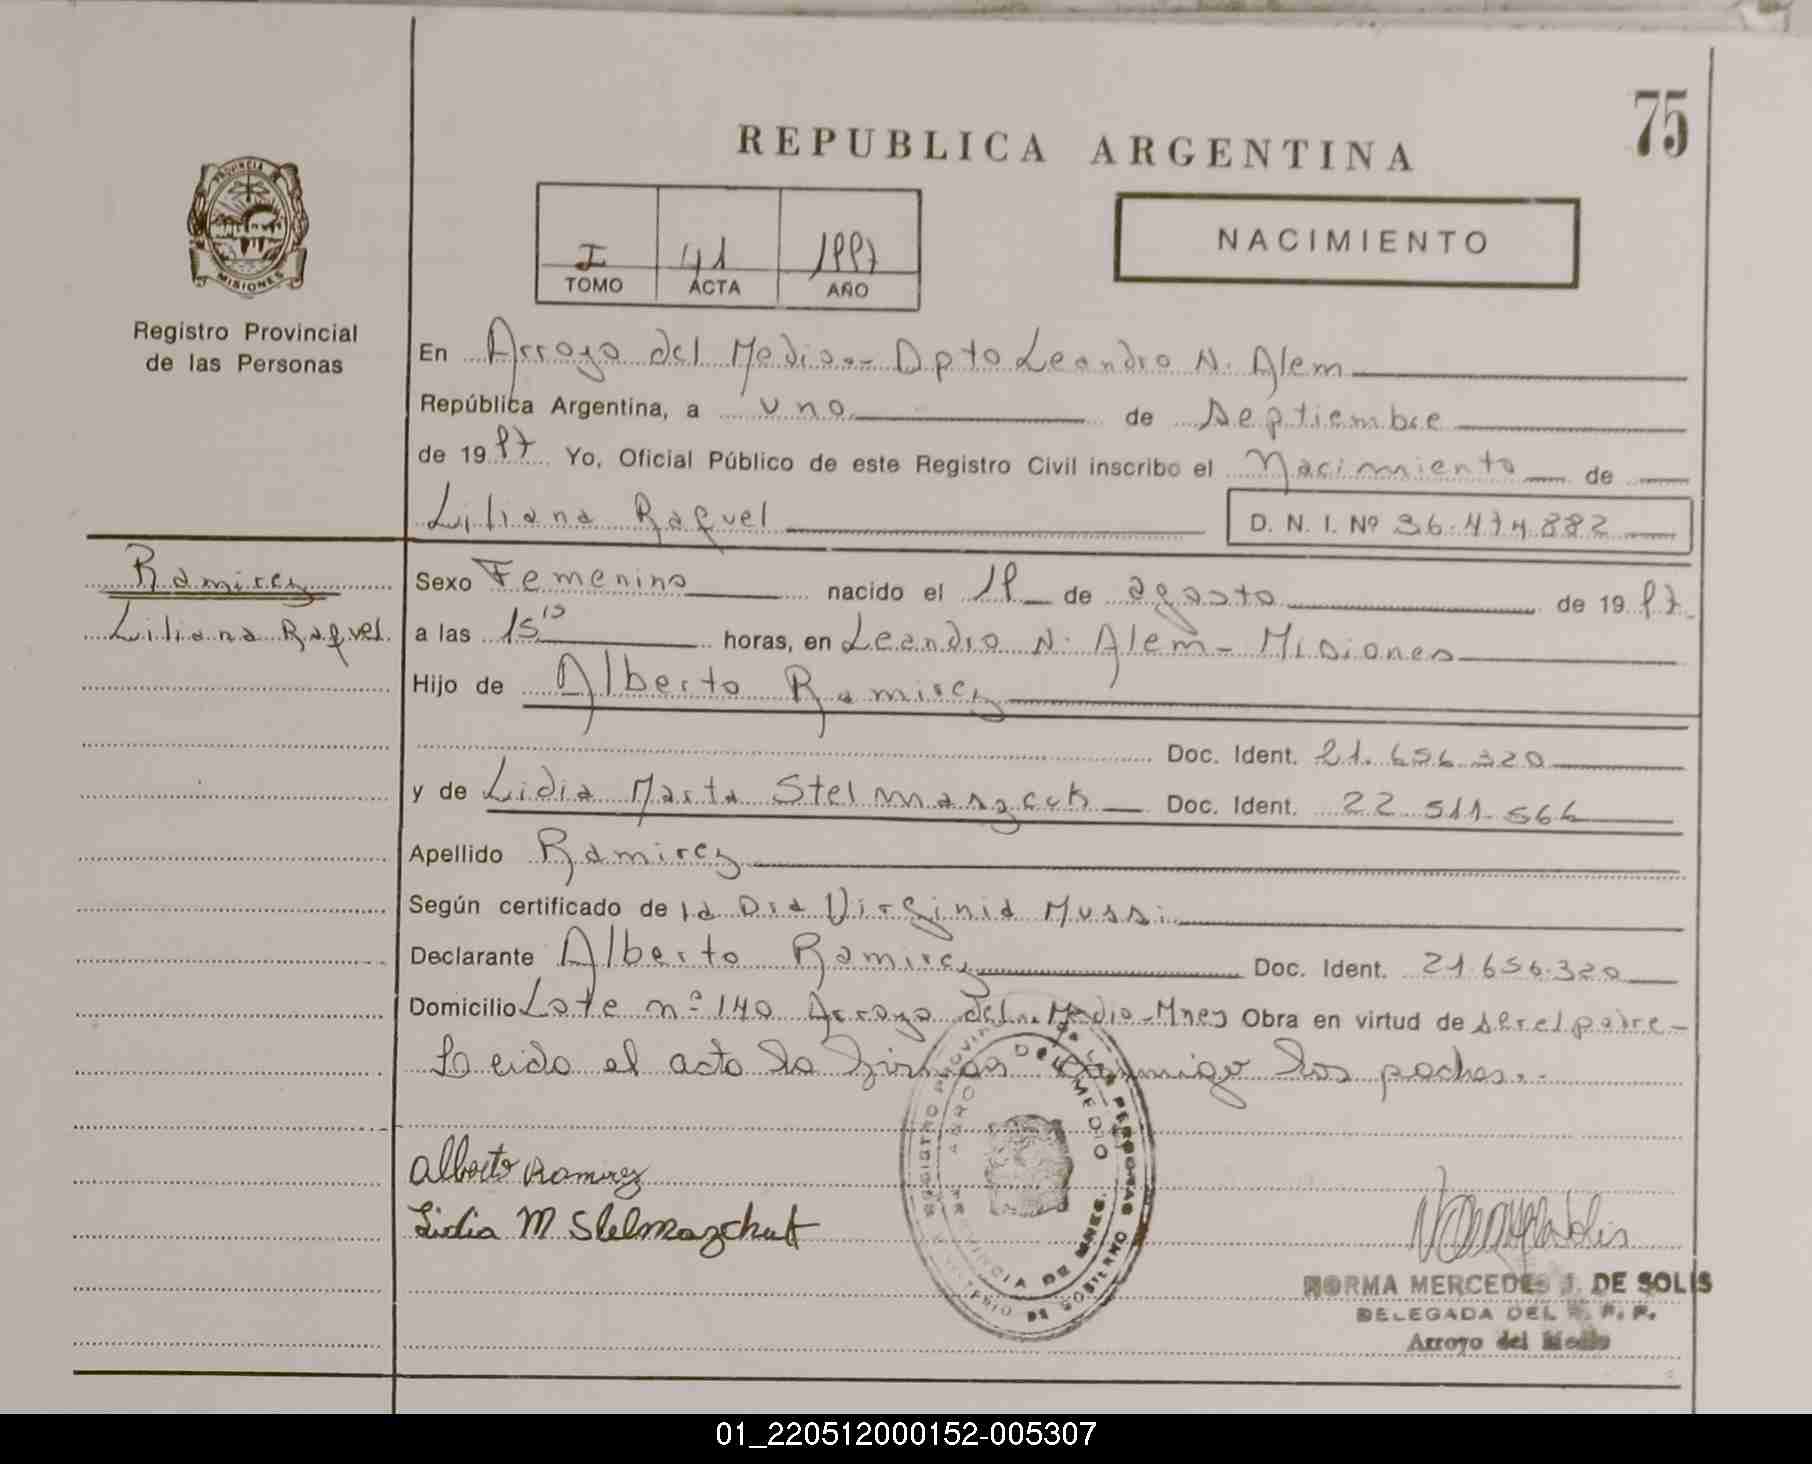 75
REPUBLICA ARGENTINA
PROVINCIA DE
MISIONES
Registro Provincial
de las Personas
I 41
TOMO ACTA AÑO
NACIMIENTO
En Arroyo del Medio.- Dpto Leandro N. Alem
República Argentina, a uno de Septiembre
de 19 Yo, Oficial Público de este Registro Civil inscribo el Nacimiento de
Liliana Raquel D. N. I. Nº 36.474.882
Ramirez
Liliana Raquel
Sexo Femenino nacido el de agosto de 19
a las 15 horas, en Leandro N. Alem - Misiones
Hijo de Alberto Ramirez
Doc. Ident. 21.656.320
y de Lidia Marta Doc. Ident. 22 511.566
Apellido Ramirez
Según certificado de la Dra Virginia Mussi
Declarante Alberto Ramirez Doc. Ident. 21.656.320
Domicilio Lote nº 140 Arroyo del Medio - Mnes Obra en virtud de ser el padre -
Leido el acta la firman conmigo los padres.-
Alberto Ramirez
Lidia M
REGISTRO PROVINCIAL DE LAS PERSONAS
ARROYO DEL MEDIO
PROVINCIA DE MNES.
MINISTERIO DE GOBIERNO
NORMA MERCEDES J. DE SOLIS
DELEGADA DEL R. P. P.
Arroyo del Medio
01_220512000152-005307